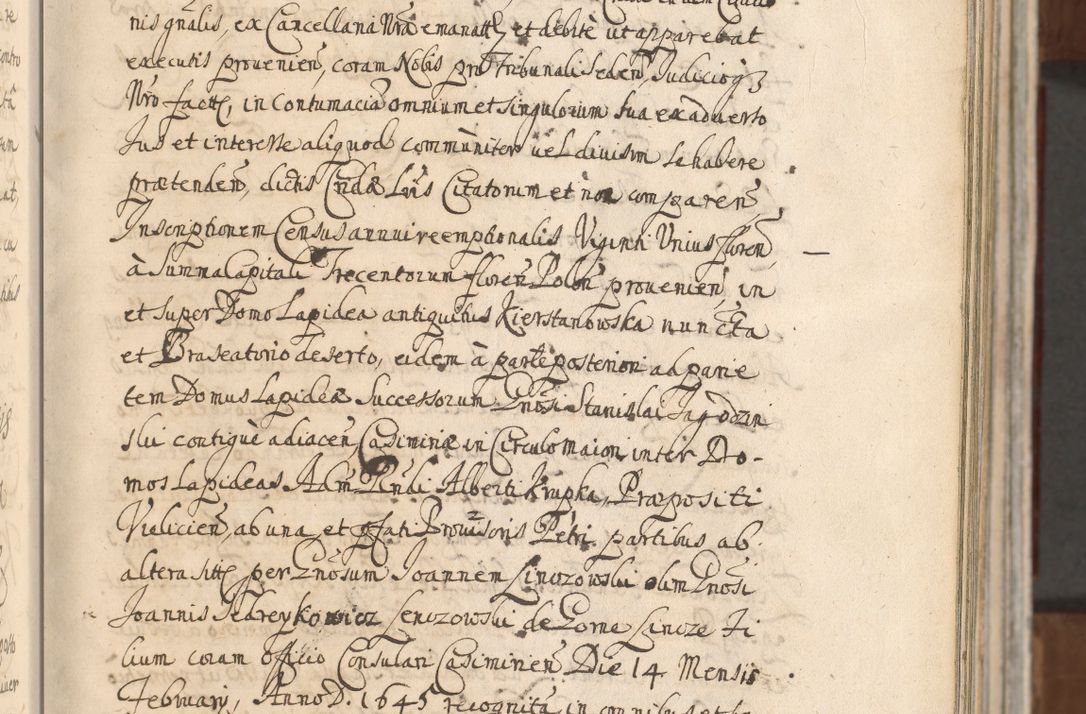 nis gnalis, ex Cancellaria Nra emanatt, et debite ut apparebat
executis provenien, coram Nobis pro Tribunali seden, Judicioq3
Nro factt, in contumacia omnium et singulorum sua ex adverso
Jus et interesse aliquod communiter vel divisim se habere
prætenden, dictis Citatorum et non comparen
Inscriptionem Census annui reemptionalis Viginti Unius floren
à Summa Capitali Trecentorum floren Polon provenien, in
et super Domo Lapidea antiquitus Kierstanowska nuncta
et Braseatorio deserto, eidem à parte posteriori ad parie
tem Domus Lapideæ Successorum Gnosi Stanislai Jagodzin
slii contiguè adiacen, Casimiriæ in Circulo Maiori inter Do-
mos Lapideas Adm Rndi Alberti Krupka, Præpositi
Vielicien, ab una, et pfati Provisoris Petri partibus ab
altera sitt per Gnosum Joannem Linczowski olim Gnosi
Joannis Jedreykowicz Lenczowski de Gorne Lincze fi
lium coram officio Consulari Casimirien Die 14 Mensis
Februarij, Anno D. 1645 recognita in omnibus